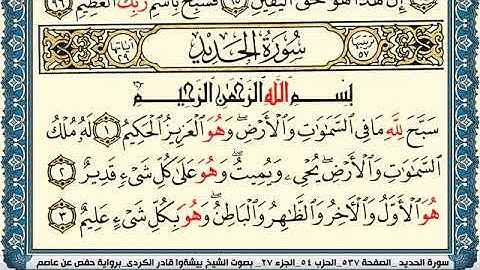 إِنَّ هَٰذَا هُوَ حَقُّ الْيَقِينِ ٩٥ فَسَبِّحْ بِاسْمِ رَبِّكَ الْعَظِيمِ ٩٦
ترتيبها ٥٧ سُورَةُ الْحَدِيدِ آياتها ٢٩
بِسْمِ اللَّهِ الرَّحْمَٰنِ الرَّحِيمِ
سَبَّحَ لِلَّهِ مَا فِي السَّمَٰوَٰتِ وَالْأَرْضِ ۖ وَهُوَ الْعَزِيزُ الْحَكِيمُ ١ لَهُ مُلْكُ
السَّمَٰوَٰتِ وَالْأَرْضِ ۖ يُحْيِۦ وَيُمِيتُ ۖ وَهُوَ عَلَىٰ كُلِّ شَيْءٍ قَدِيرٌ ٢
هُوَ الْأَوَّلُ وَالْآخِرُ وَالظَّاهِرُ وَالْبَاطِنُ ۖ وَهُوَ بِكُلِّ شَيْءٍ عَلِيمٌ ٣
سورة الحديد _الصفحة ٥٣٧_الحزب ٥٤_الجزء ٢٧_ بصوت الشيخ بيشةوا قادر الكردى_برواية حفص عن عاصم